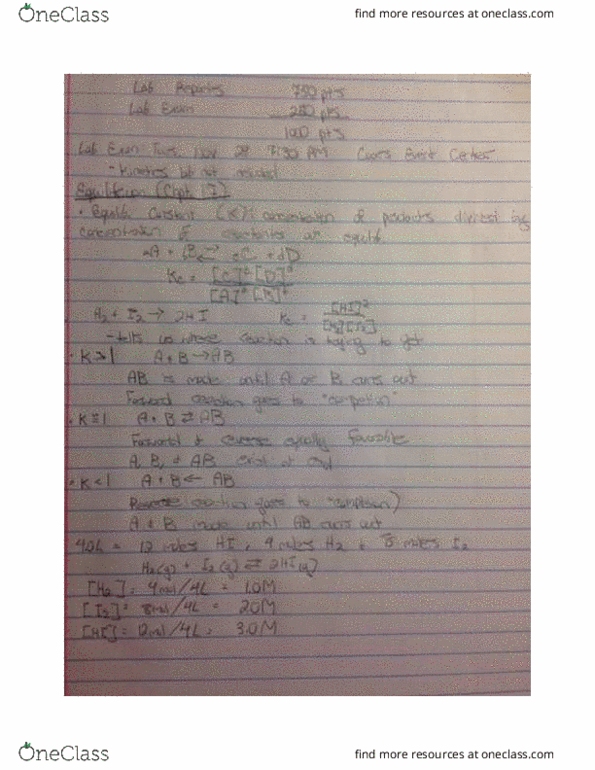 OneClass
find more resources at oneclass.com
Lab Reports 750 pts
Lab Exam 250 pts
1000 pts
Lab Exam Tues Nov 28 7:30 PM Coors Event Center
- Kinetics but not
Equilibrium (Chpt 15)
• Equilib Constant (K): concentration of products divided by
concentration of reactants at equilib
aA + bB ⇌ cC + dD
Kc = [C]^c [D]^d
[A]^a [B]^b
H2 + I2 → 2HI Kc = [HI]^2
[H2][I2]
- tells us where reaction is trying to get
• K>1 A + B → AB
AB is made until A or B runs out
Forward reaction goes to "completion"
• K≅1 A + B ⇌ AB
Forward & reverse equally favorable
A, B, & AB exist at end
• K<1 A + B ← AB
Reverse reaction goes to "completion)
A & B made until AB runs out
4.0L = 12 moles HI, 4 moles H2 + 8 moles I2
H2(g) + I2(g) ⇌ 2HI(g)
[H2] = 4mol/4L = 1.0M
[I2] = 8mol/4L = 2.0M
[HI] = 12mol/4L = 3.0M
OneClass
find more resources at oneclass.com